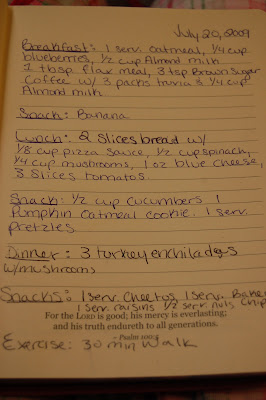 July 20, 2009
Breakfast: 1 serv. oatmeal, 1/4 cup
blueberries, 1/2 cup Almond milk
2 tbsp. flax meal, 3 tsp Brown Sugar
Coffee w/ 3 packs truvia & 1/4 cup
Almond milk
Snack: Banana
Lunch: 2 slices bread w/
1/8 cup pizza sauce, 1/2 cup spinach,
1/4 cup mushrooms, 1 oz blue cheese,
3 slices tomatos.
Snack: 1/2 cup cucumbers, 1
Pumpkin oatmeal cookie. 1 serv.
pretzels.
Dinner: 3 turkey enchiladas
w/mushrooms
Snacks: 1 serv. Cheetos, 1 serv. Baked
1 serv. raisins 1/2 serv. nuts Chips
For the LORD is good; his mercy is everlasting;
and his truth endureth to all generations.
~ Psalm 100:5
Exercise: 30 min Walk